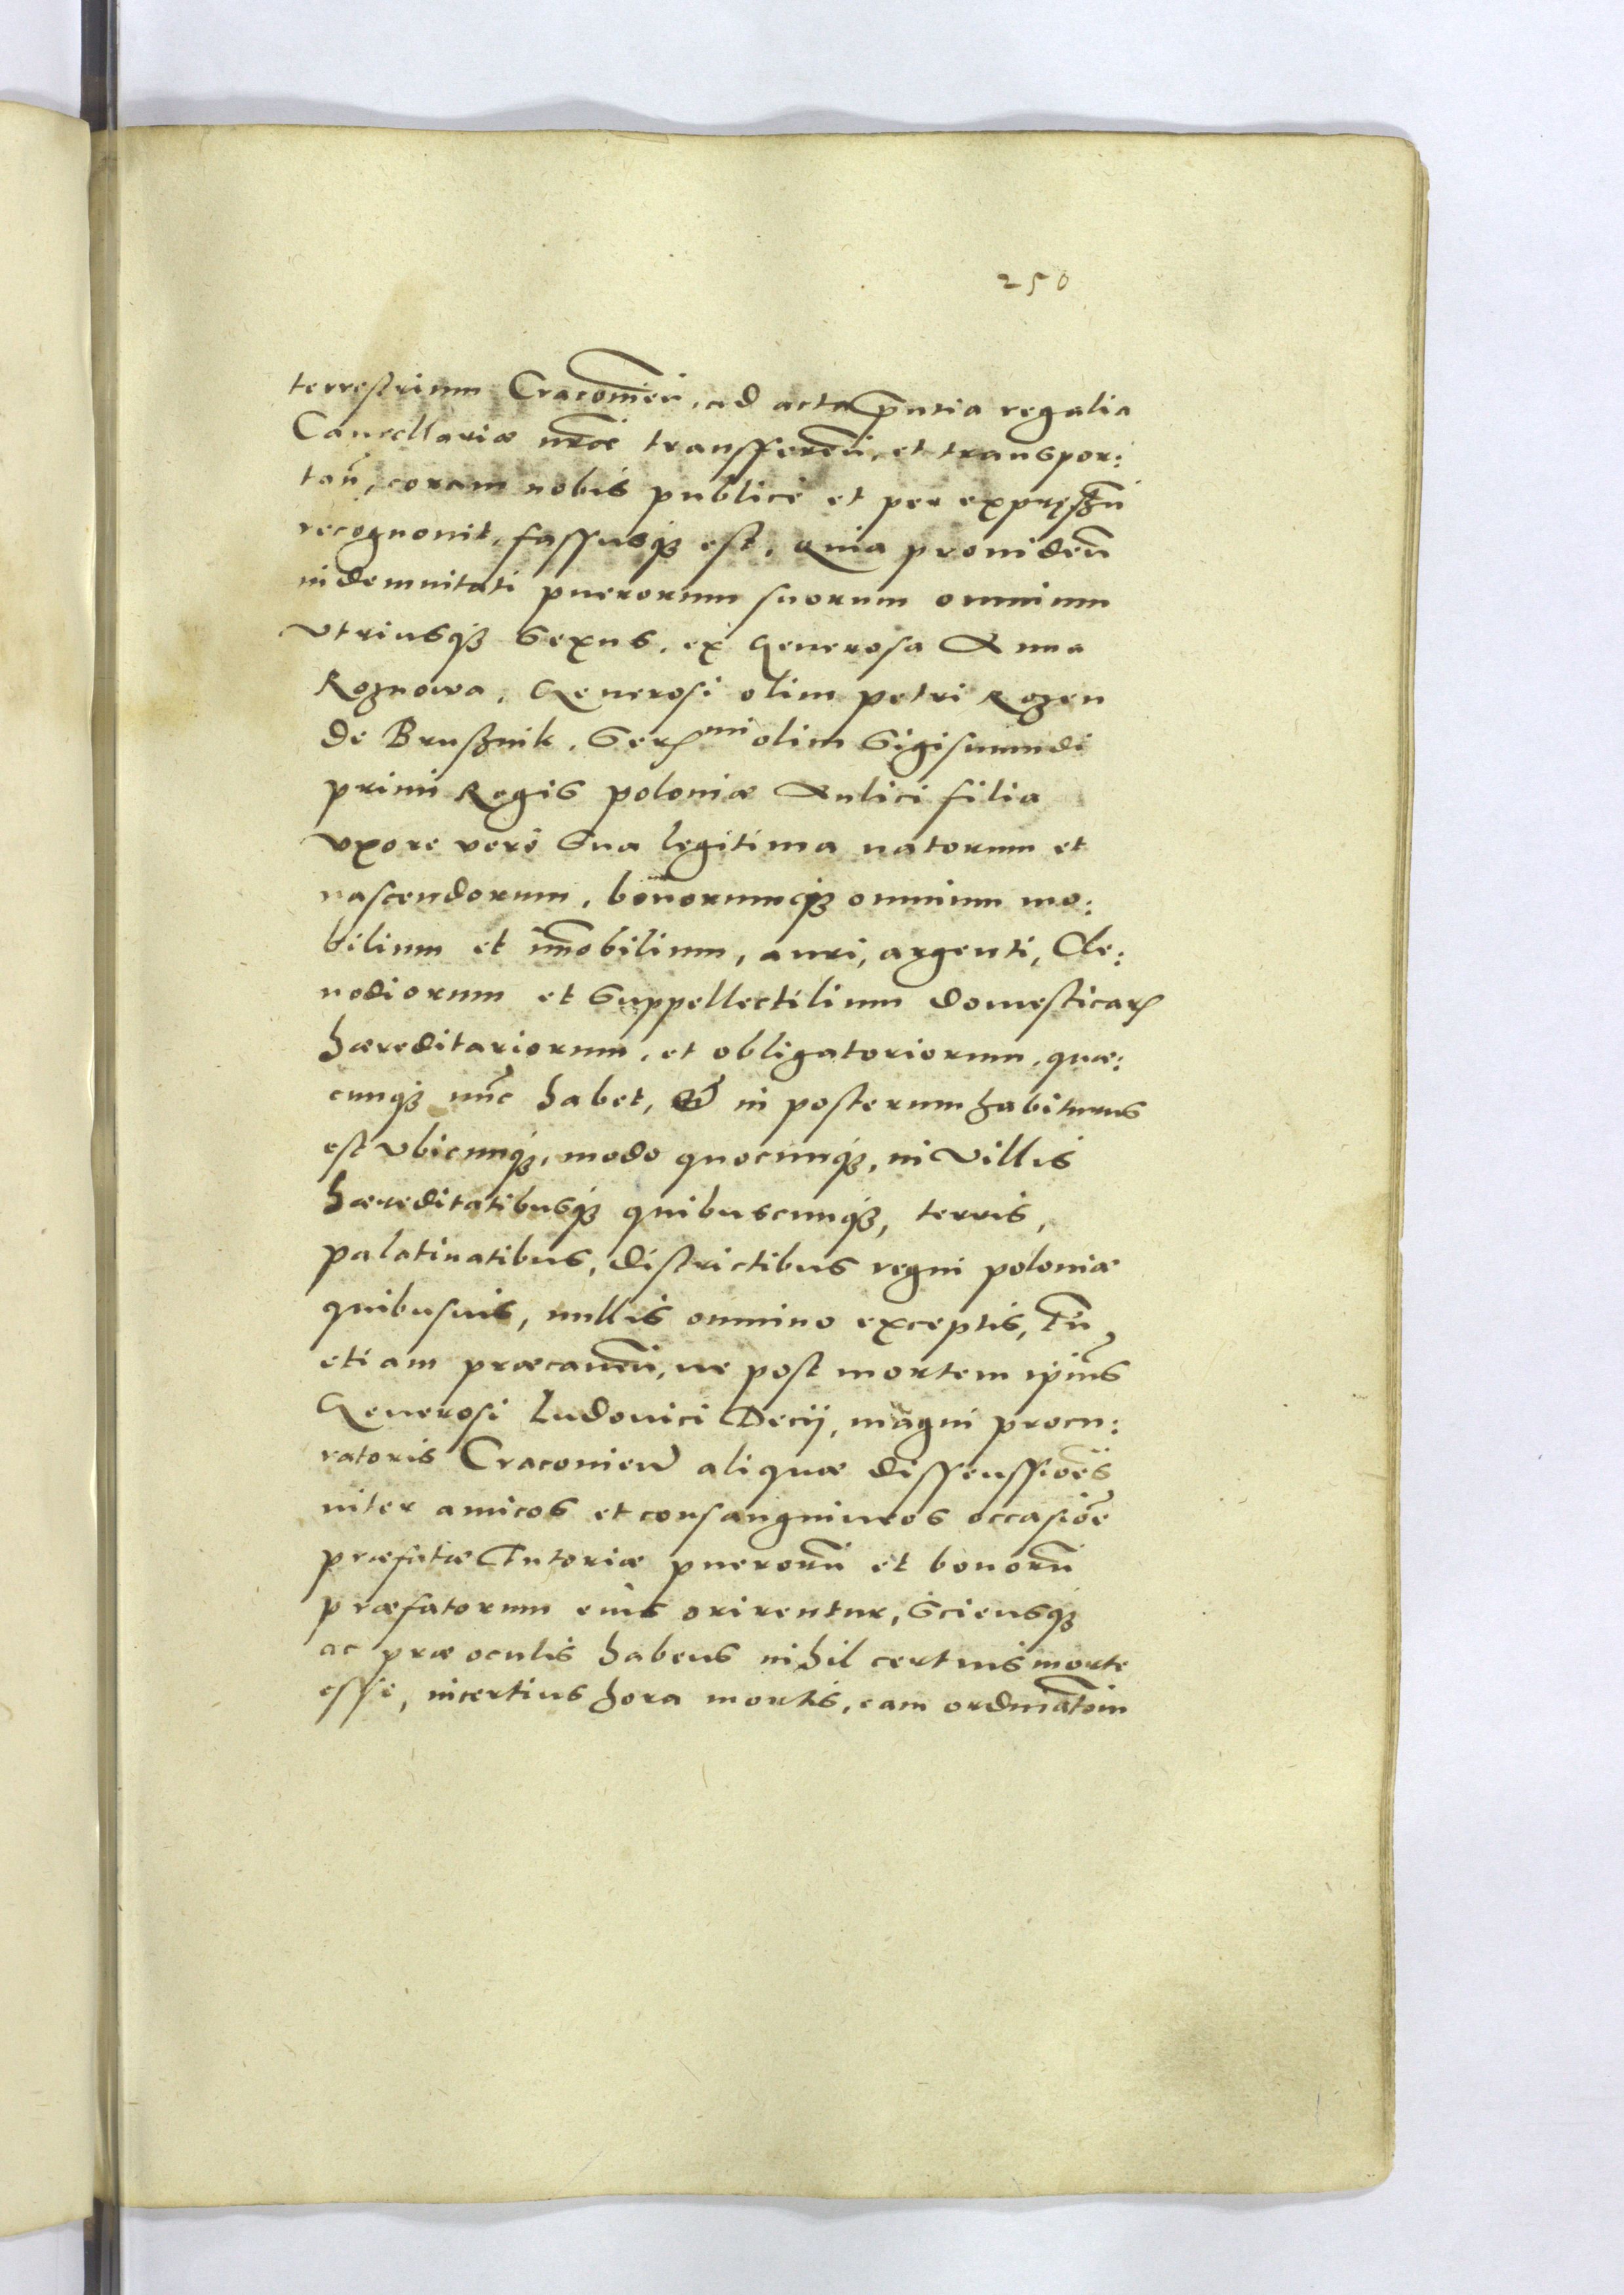 250
terrestrium Cracouien̄, ad acta p̄ntia regalia
Cancellariæ nr̄æ transfferen̄, et transpor:
tan̄, coram nobis publice et per expressū
recognouit, fassusq₃ est, quia prouiden̄
indemnitati puerorum suorum omnium
vtriusq₃ sexus, ex Generosa Anna
Roznowa, Generosi olim Petri Rozen
de Brusznik, Ser^mi olim Sigismundi
primi Regis poloniæ Aulici filia
vxore verò sua legitima natorum et
nascendorum, bonorumq₃ omnium mo:
bilium et im̄obilium, auri, argenti, Cle:
nodiorum et suppellectilium domesticarꝝ
hæreditariorum, et obligatoriorum, quæ:
cunq₃ nūc habet, & in posterum habiturus
est vbicunq₃, modo quocunq₃, in villis
hæreditatibusq₃ quibuscunq₃, terris,
palatinatibus, districtibus regni poloniæ
quibusuis, nullis omnino exceptis, Tū
etiam præcauen̄, ne post mortem ip̄ius
Generosi Ludouici Decij, magni procu:
ratoris Cracouien̄ aliquæ dissenssiōes
inter amicos et consanguineos occasiōe
præfatæ Tutoriæ puerorū et bonorū
præfatorum eius orirentur, Sciensq₃
ac præ oculis habens nihil certius morte
esse, incertius hora mortis, eam ordinatōm